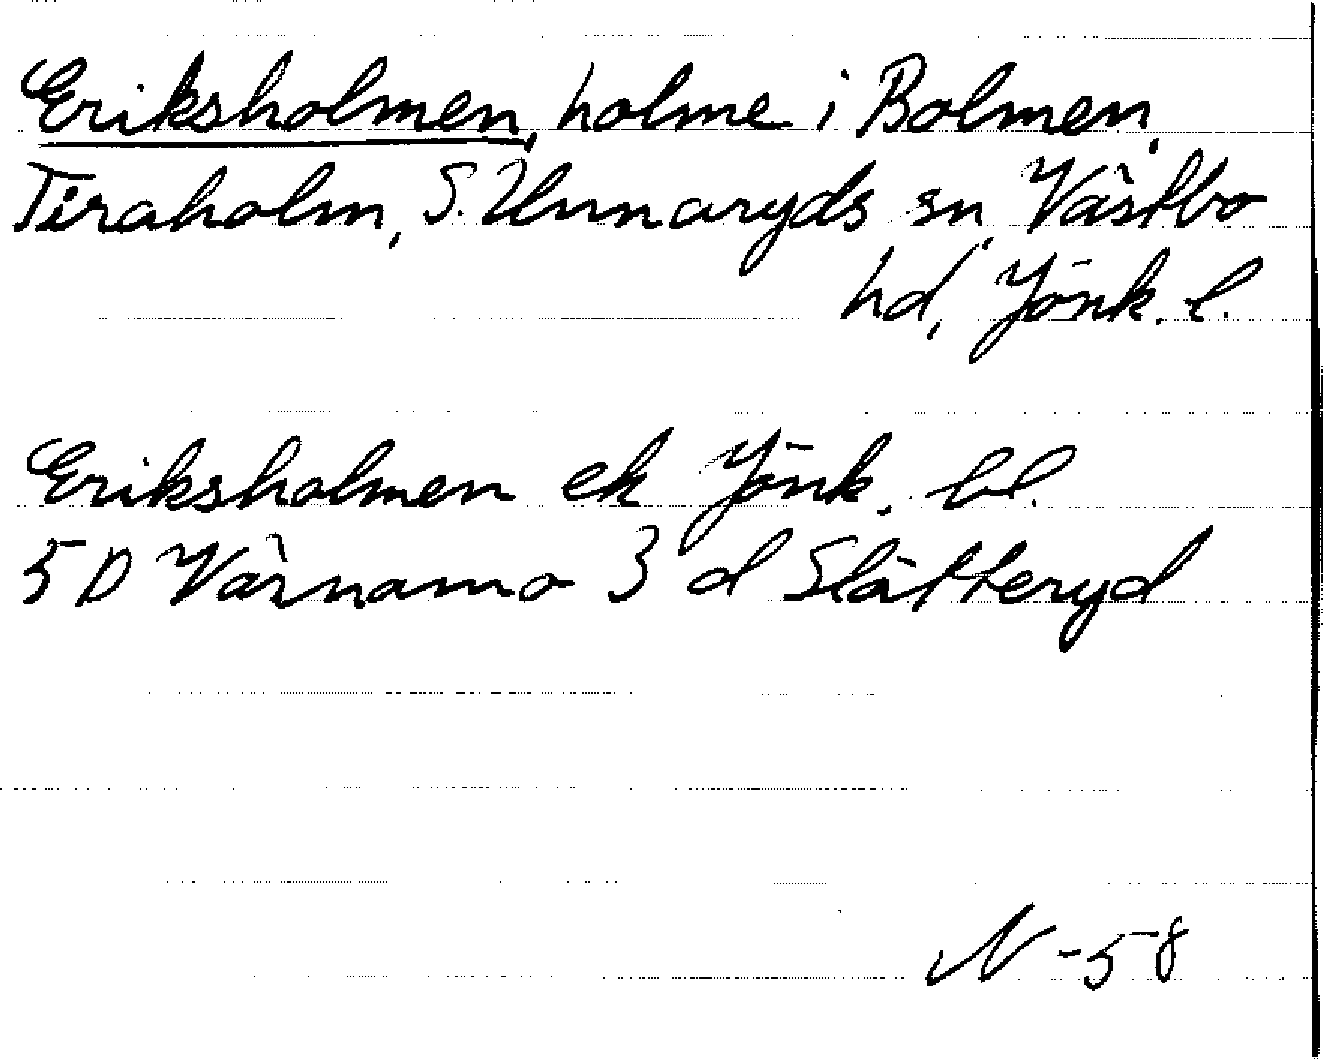 Eriksholmen, holme i Bolmen,
Tiraholm, S. Unnaryds sn, Västbo
hd, Jönk. l.
Eriksholmen ek Jönk. bl.
5 D Värnamo 3 d Slätteryd
N -58